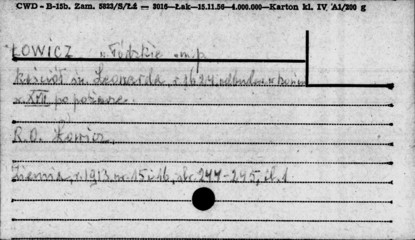 CWD - B-15b. Zam. 5823/S/Łź — 3016—Łak—15.11.56—4.000.000—Karton kl. IV A1/200 g
ŁOWICZ, w. Łódzkie m.p.
kościół św. Leonarda, r. 1624, odbudow. w końcu
w. XVII po pożarze.
R.D. Łowicz.
Ziemia, r. 1913, nr. 15 i 16, str. 244-245, il. 1